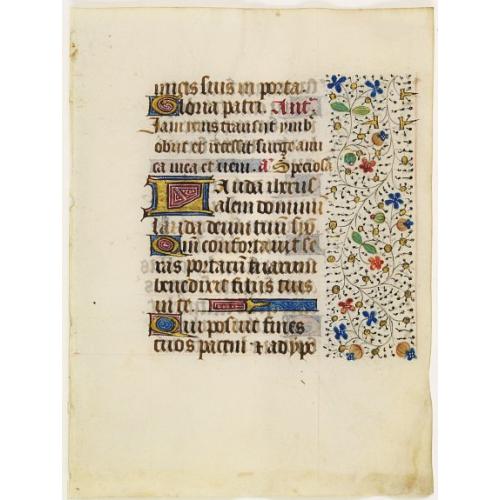 micis suis in porta.
Gloria patri. Ant.
Iam iens transiit ymb
obiit et recessit surge ami
ca mea et veni. a. Speciosa
Lauda iherus
alem dominu
lauda deum tuu syo
Qm confortavit se
ras portaru tuarum
benedixit filiis tuis
in te.
Qui posuit fines
tuos pacem & adype